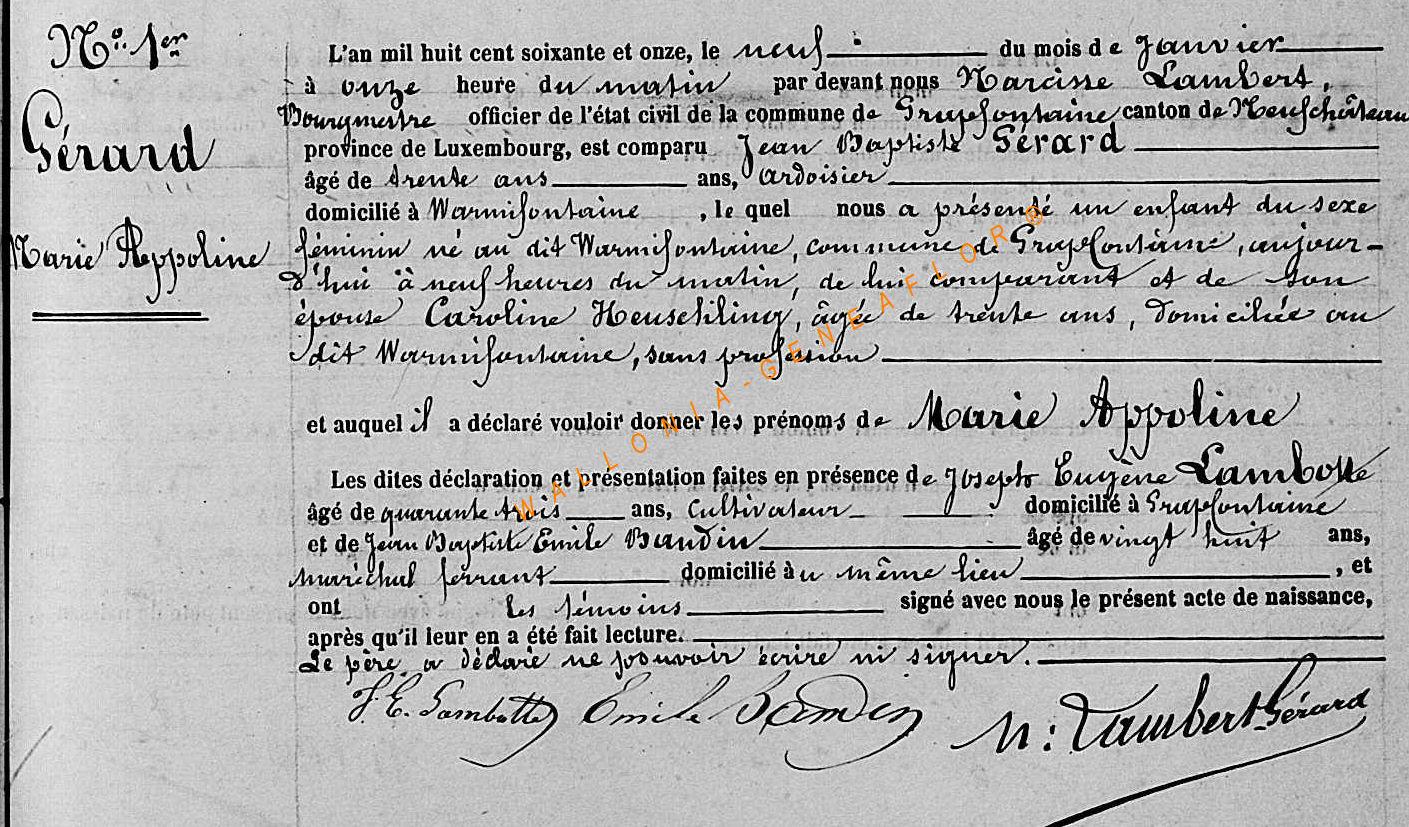 No. 1er
Gérard
Marie Appoline
L'an mil huit cent soixante et onze, le neuf du mois de Janvier
à onze heure du matin par devant nous Narcisse Lambert,
Bourgmestre officier de l'état civil de la commune de Grapfontaine canton de Neufchâteau
province de Luxembourg, est comparu Jean Baptiste Gérard
âgé de trente ans ans, ardoisier
domicilié à Warmifontaine , le quel nous a présenté un enfant du sexe
féminin né au dit Warmifontaine, commune de Grapfontaine, aujour-
d'hui à neuf heures du matin, de lui comparant et de son
épouse Caroline Heuschling, âgée de trente ans, domiciliée au
dit Warmifontaine, sans profession
et auquel il a déclaré vouloir donner les prénoms de Marie Appoline
Les dites déclaration et présentation faites en présence de Joseph Eugène Lambotte
âgé de quarante trois ans, cultivateur domicilié à Grapfontaine
et de Jean Baptiste Emile Baudin âgé de vingt huit ans,
maréchal ferrant domicilié au même lieu , et
ont les témoins signé avec nous le présent acte de naissance,
après qu'il leur en a été fait lecture.
Le père a déclaré ne pouvoir écrire ni signer.
J. E. Lambotte Emile Baudin N: Lambert Gérard
WALLONIA-GENEAFLOR®